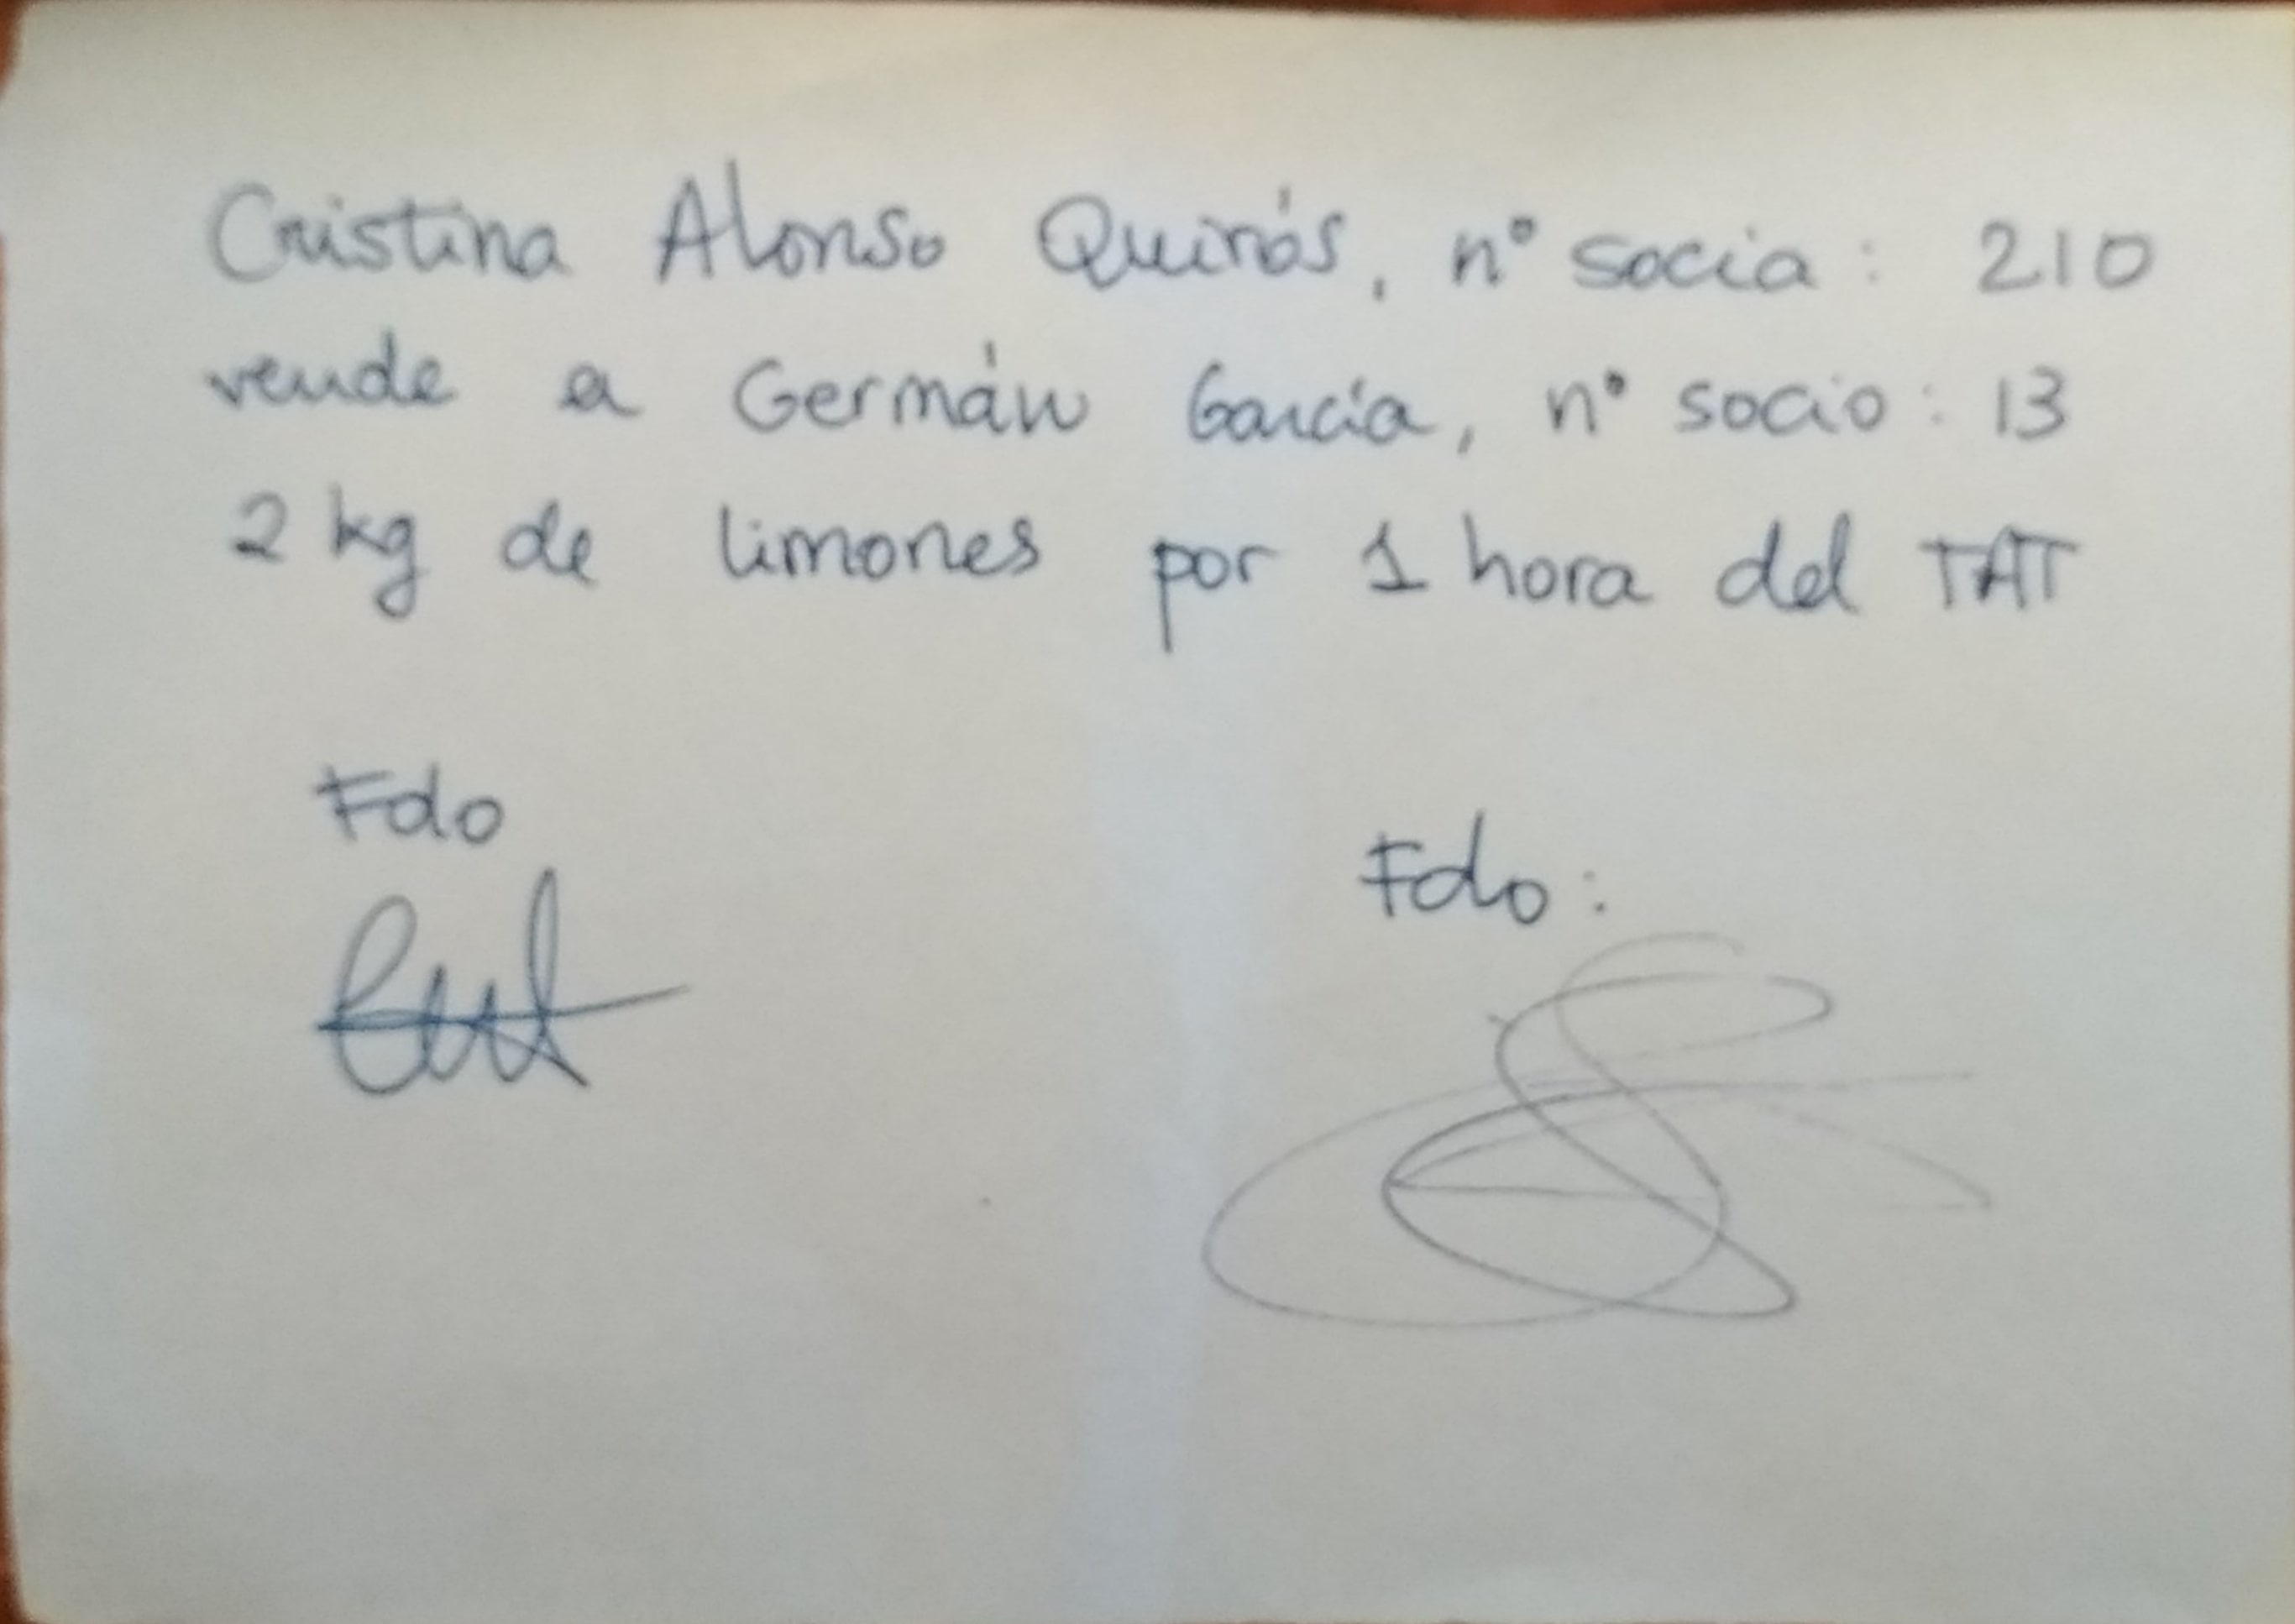 Cristina Alonso Quirós, nº socia: 210
vende a Germán García, nº socio: 13
2 kg de limones por 1 hora del TAT
Fdo
Fdo: